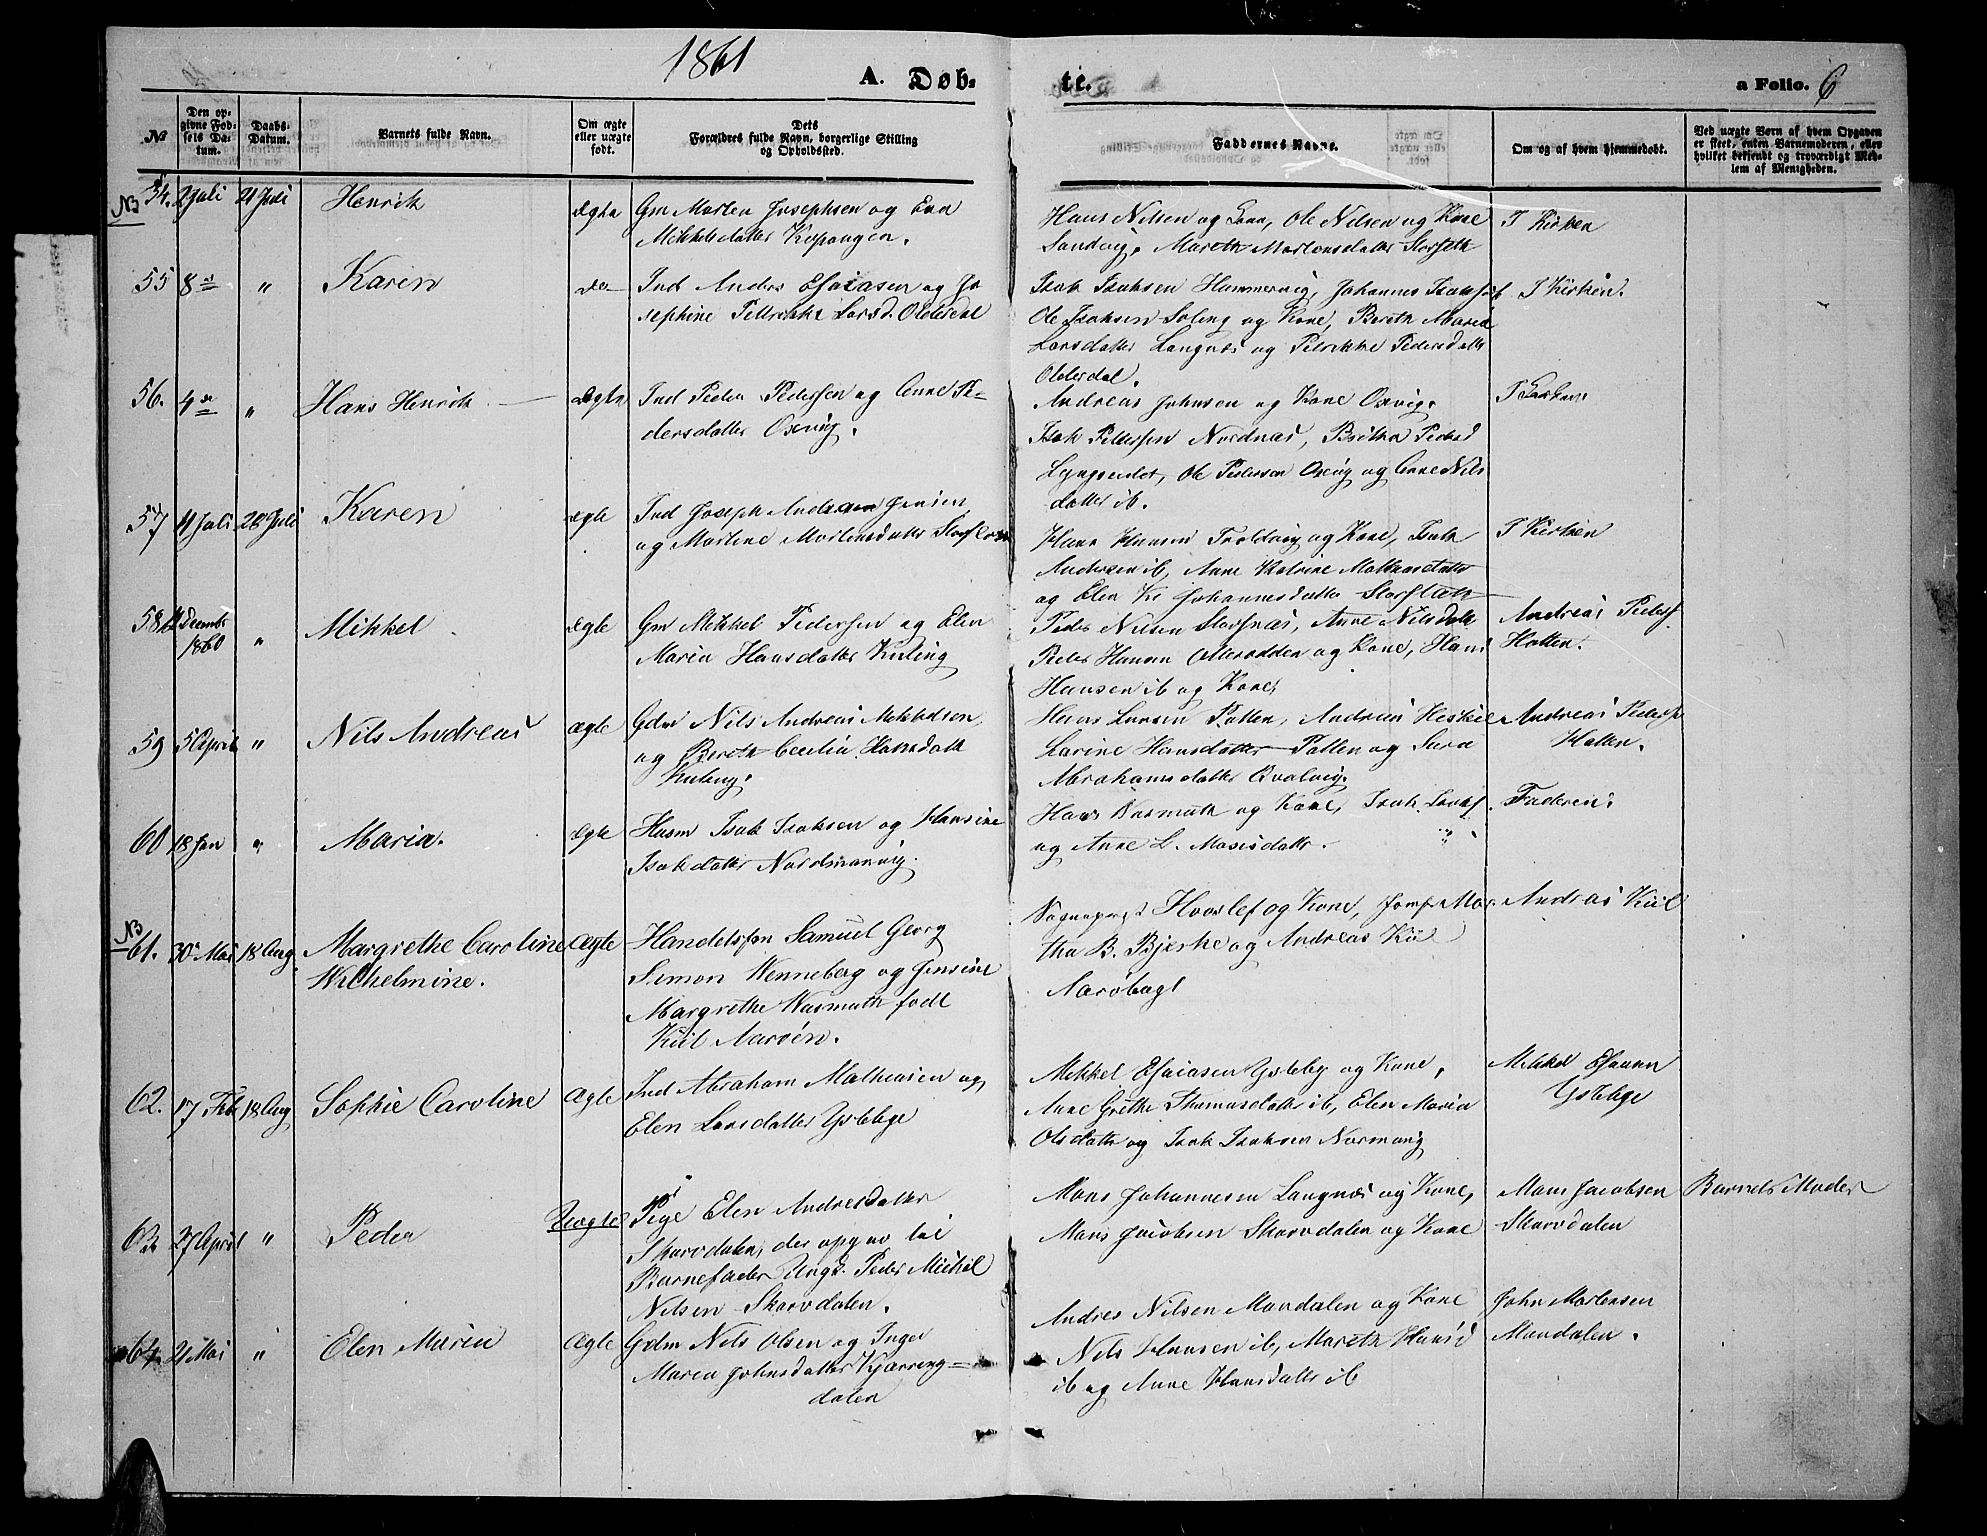 1861
A. Døb-
te.
a Folio. 6
No
Den op-
givne Fød-
sels Da-
tum.
Daabs-
Datum.
Barnets fulde Navn.
Om ægte
eller uægte
født.
Dets
Forældres fulde Navn, borgerlige Stilling
og Opholdssted.
Faddernes Navne.
Om og af hvem hjemmedøbt.
Ved uægte Børn af hvem Opgaven
er skeet, enten Barnemoderen, eller
hvilket bekjendt og troværdigt Med-
lem af Menigheden.
NB 54. 2 Juli 21 Juli Henrik ægte Gm Morten Josephsen og Ena
Mikkelsdatter Kopangen.
Hans Nilsen og Kone, Ole Nilsen og Kone
Sandvig, Mareth Mortensdatter Storfeth
I Kirken
55 8de " Karen do Ind Anders Esaiasen og Jo
sephine Pettrikke Larsd. Olderdal
Isak Isaksen Hammervig, Johannes Isaks ib
Ole Isaksen Soleng og Kone, Bereth Maria
Larsdatter Langnæs og Petrikke Pedersdatter
Olderdal.
I Kirken.
56. 4de " Hans Henrik ægte Ind Peder Pedersen og Anne Pe-
dersdatter Oxvig.
Andreas Johnsen og Kone Oxvig.
Isak Pettersen Nordnæs, Britha Pedersd
Lyngseidet, Ole Pedersen Oxvig og Anne Nils
datter ib.
I Kirken
57 11 Juli 28 Juli Karen ægte Ind Joseph Andreas Jensen
og Martine Mortensdatter
Hans Hansen Troldvig og Kone, Isak
Andersen ib, Anne Katrine Mathiasdatter
og Elen Kr Johannesdatter
I Kirken
58 Decembr
1860 " Mikkel ægte Gm Mikkel Pedersen og Elen
Maria Hansdatter Kuling
Peder Nilsen Storsnæs, Anne Nilsdatter
Peder Hansen Olterodden og Kone, Hans
Hansen ib og Kone
Andreas Peders.
Hatten.
59 5 April " Nils Andreas ægte Gdm Nils Andreas Mikkelsen
og Bereth Cecilia Hansdatter
Kuleng.
Hans Larsen Pollen, Andreas
Larine Hansdatter Pollen og Sara
Abrahamsdatter Qvalvig.
Andreas Peders
Hatten.
60 18 Jan " Maria. ægte Husm Isak Isaksen og Hansine
Isaksdatter Nordmanvig.
Hans Wasmuth og Kone, Isak Isaks.
og Anne L. Mosisdatter.
Faderen.
NB
61. 30 Mai 18 Aug. Margrethe Caroline
Wilhelmine. Ægte Handelsfm Samuel Georg
Simon Wenneberg og Jensine
Margrethe Wasmuth født
Kiil Aarøen.
Sognepræst Hvoslef og Kone, Jomf Mar
tha B. Bjerke og Andreas Kiil
Andreas Kiil
62. 17 Feb 18 Aug Sophie Caroline Ægte Ind Abraham Mathiasen og
Elen Larsdatter Ysteby
Mikkel Esaiasen Ysteby og Kone,
Anne Grethe Thomasdatter ib, Elen Maria
Olsdatter og Isak Isaksen Normanvig
Mikkel Esaiasen
Ysteby
63. 27 April " Peder Uægte Pige Elen Andresdatter
Skarvdalen, der opgav til
Barnefader Ungk. Peder Mickel
Nilsen Skarvdalen.
Mons Johannesen Langnæs og Kone,
Mons Jacobsen Skarvdalen og Kone
Mons Jacobsen
Skarvdalen
Barnets Moder
64. 21 Mai " Elen Maria Ægte Gdm Nils Olsen og Inger
Maria Johnsdatter Kjærring-
dalen
Andres Nilsen Mandalen og Kone
Nils Hansen ib, Mareth Hansd
ib og Anne Hansdatter ib
John Mortensen
Mandalen.